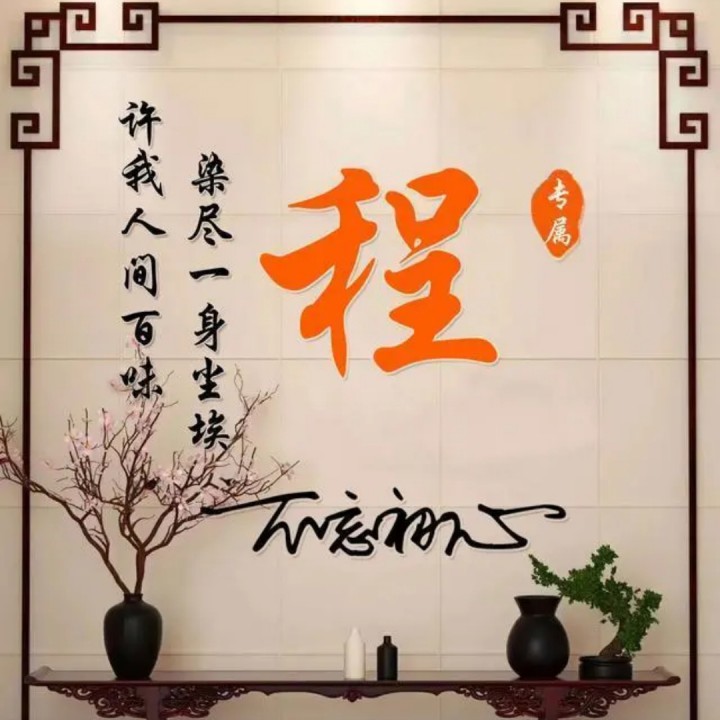 专属
程
染尽一身尘埃
许我人间百味
不忘初心